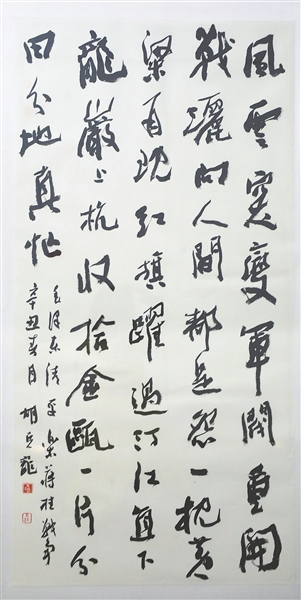 風雲突變軍閥重開
戰灑向人間都是怨一枕黃
粱再現紅旗躍過汀江直下
龍巖上杭收拾金甌一片分
田分地真忙
毛澤東清平樂蔣桂戰爭
辛丑春月 胡